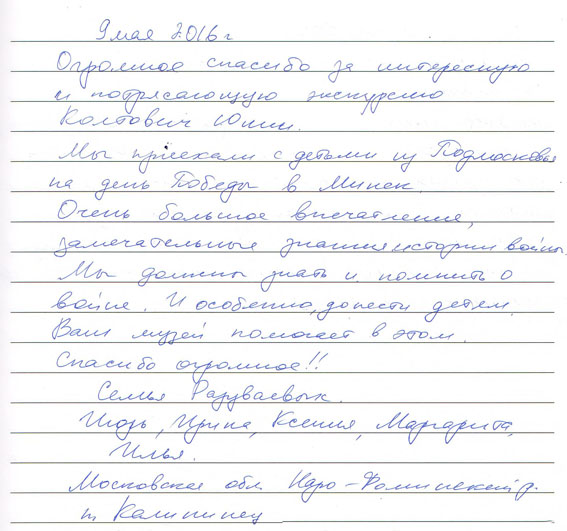 9 мая 2016 г
Огромное спасибо за интересную
и потрясающую экскурсию
Колтович Юлии.
Мы приехали с детьми из Подмосковья
на день Победы в Минск.
Очень большое впечатление,
замечательные знания истории войны.
Мы должны знать и помнить о
войне. И особенно, донести детям.
Ваш музей помогает в этом.
Спасибо огромное!!
Семья Разуваевых.
Игорь, Ирина, Ксения, Маргарита,
Илья.
Московская обл. Наро-Фоминский р.
п Калининец